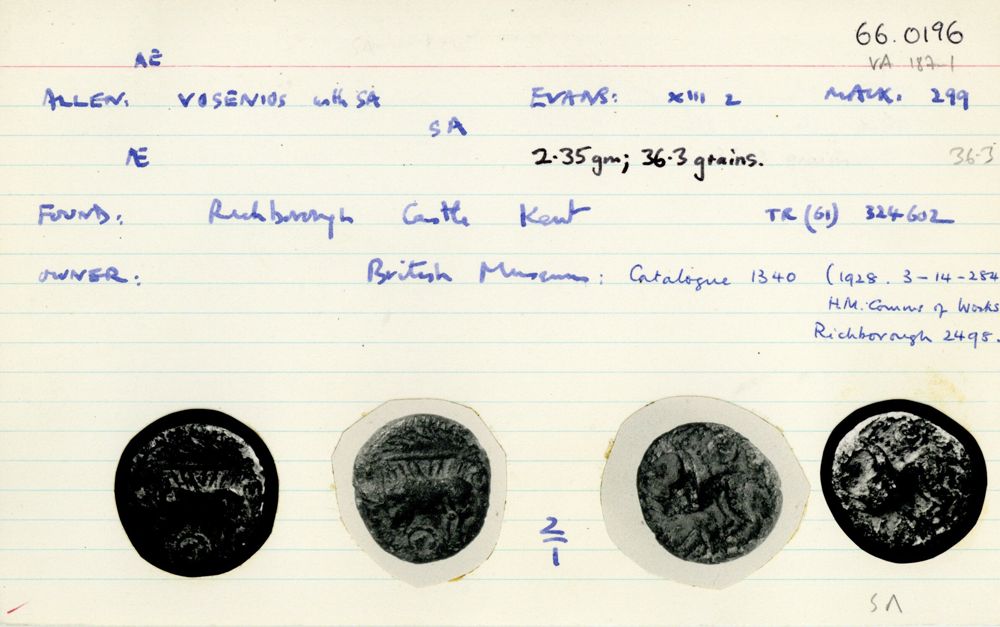 66.0196
AE
VA 187-1
ALLEN: VOSENIOS with SA EVANS: XIII 2 MACK. 299
SA
Æ 2.35 gm; 36.3 grains. 36.3
FOUND: Richborough Castle Kent TR (61) 324602
OWNER: British Museum: Catalogue 1340 (1928. 3-14-284
H.M. Comms of Works
Richborough 2498.
2
1
SA